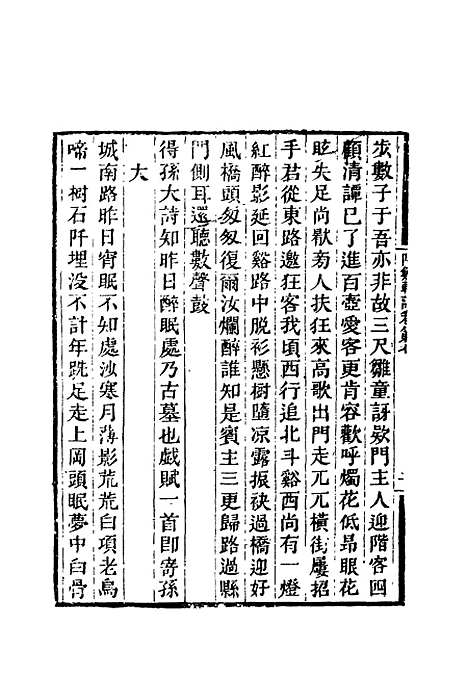 步數子于吾亦非故三尺雛童訝欵門主人迎階客回
顧清譚已了進百壺愛客更肯容歡呼燭花低昂眼花
眩失足尚猒旁人扶狂來高歌出門走兀兀橫街屢招
手君從東路邀狂客我頃西行追北斗谿西尚有一燈
紅醉影延回谿路中脫衫懸樹隨凉露振袂過橋迎好
風橋頭匆匆復爾汝爛醉誰知是賓主三更歸路過縣
門側耳還聽數聲鼓
得孫大詩知昨日醉眠處乃古墓也戲賦一首卽寄孫
大
城南路昨日宵眠不知處沙寒月薄影荒荒白項老烏
啼一樹石阡埋没不計年跣足走上岡頭眠夢中白骨